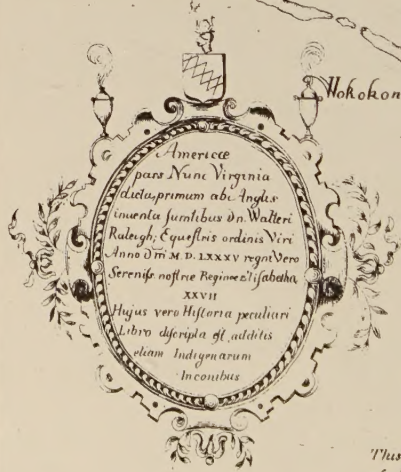 Wokokon
Americæ
pars Nunc Virginia
dicta, primum abi Anglis
inuenta sumtibus Dn. Walteri
Raleigh, Equestris ordinis Viri
Anno Dñi M.D.LXXXV regni Vero
Sereniss nostræ Reginæ Elisabetha
XXVII
Hujus vero Historia peculiari
Libro discripta est, additis
etiam Indigenarum
Inconibus
Thus